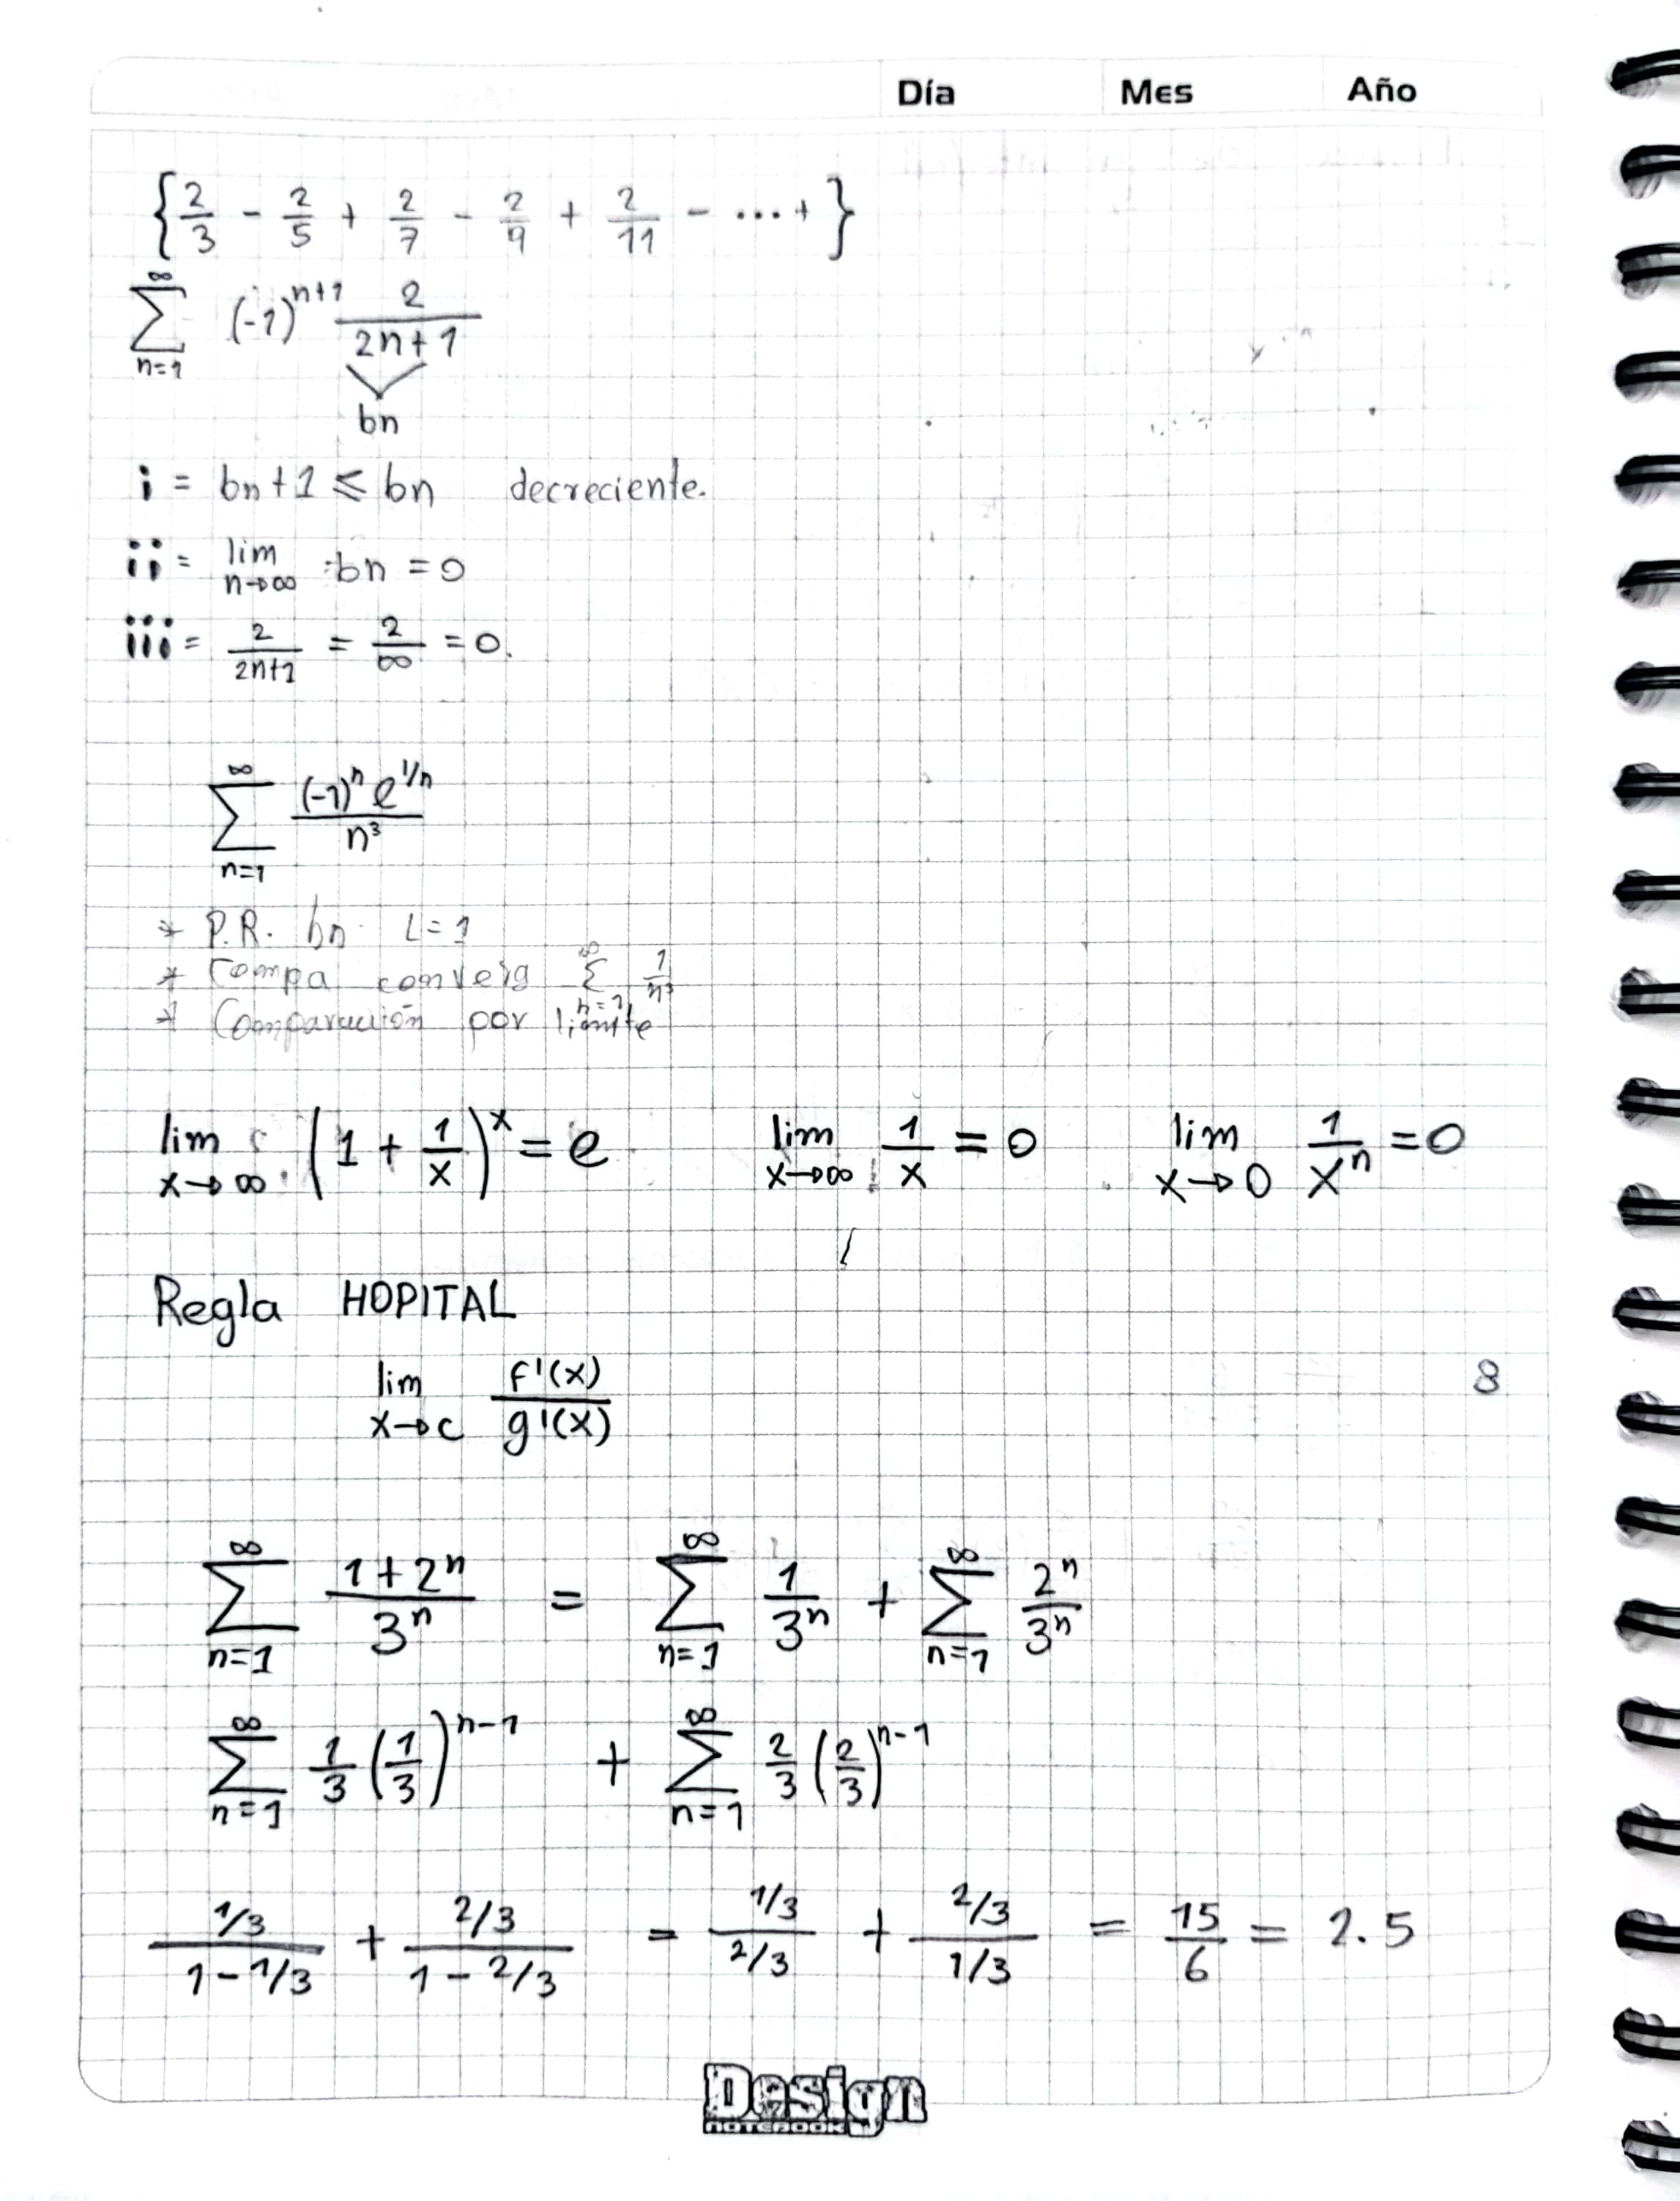 Día Mes Año
{2/3 - 2/5 + 2/7 - 2/9 + 2/11 - ... + }
∞∑n=1 (-1)^(n+1) 2/(2n+1)
bn
i = bn+1 ≤ bn decreciente.
ii = lim n→∞ bn = 0
iii = 2/(2n+1) = 2/∞ = 0.
∞∑n=1 (-1)^n e^(1/n) / n³
* P.R. bn L=1
* Compa converg ∞∑n=1 1/n³
* Comparación por limite
lim x→∞ (1 + 1/x)^x = e lim x→∞ 1/x = 0 lim x→0 1/x^n = 0
Regla HOPITAL
lim x→c f'(x)/g'(x)
8
∞∑n=1 (1+2^n)/3^n = ∞∑n=1 1/3^n + ∞∑n=1 2^n/3^n
∞∑n=1 1/3 (1/3)^(n-1) + ∞∑n=1 2/3 (2/3)^(n-1)
(1/3)/(1-1/3) + (2/3)/(1-2/3) = (1/3)/(2/3) + (2/3)/(1/3) = 15/6 = 2.5
Design
NOTEBOOK